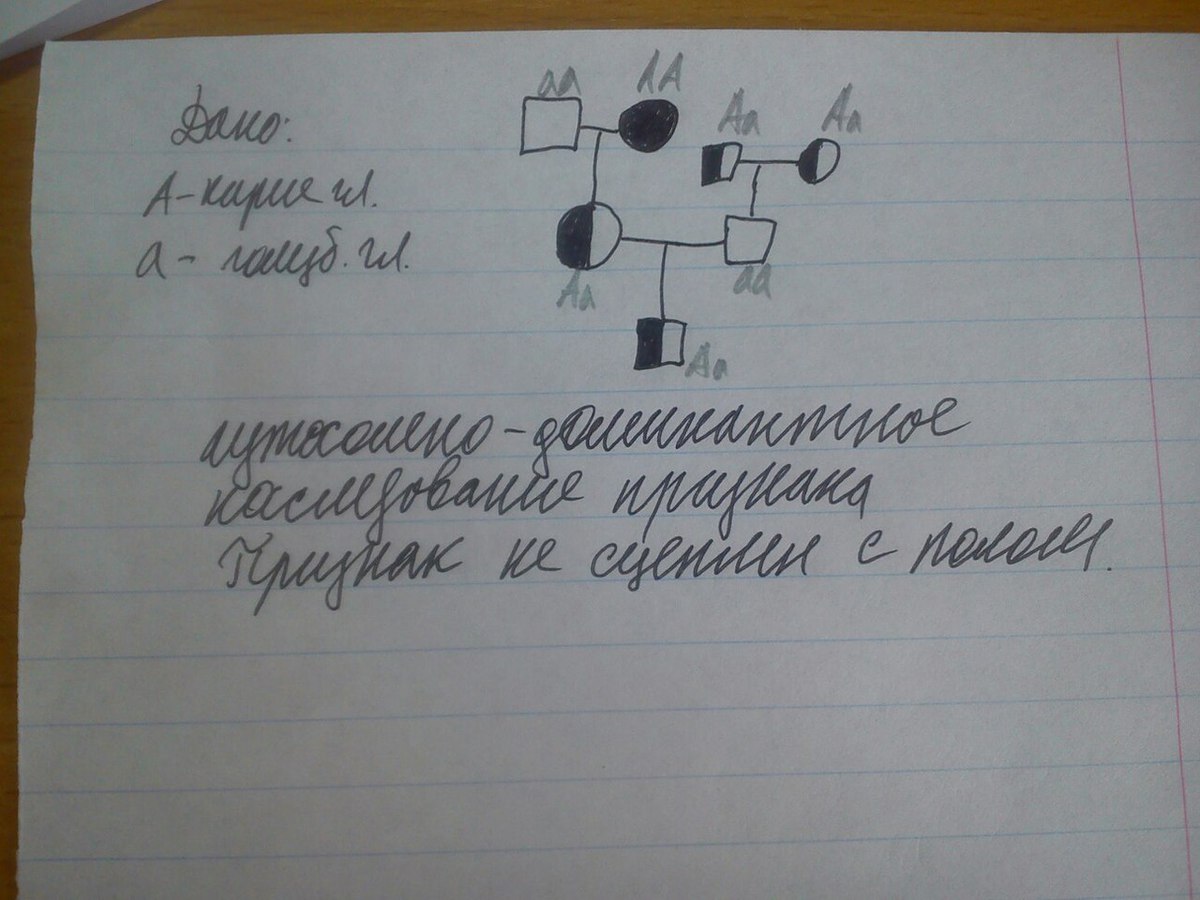 Дано:
А - карие гл.
а - голуб. гл.
аа
АА
Аа
Аа
Аа
аа
Аа
аутосомно-доминантное
наследование признака
Признак не сцеплен с полом.